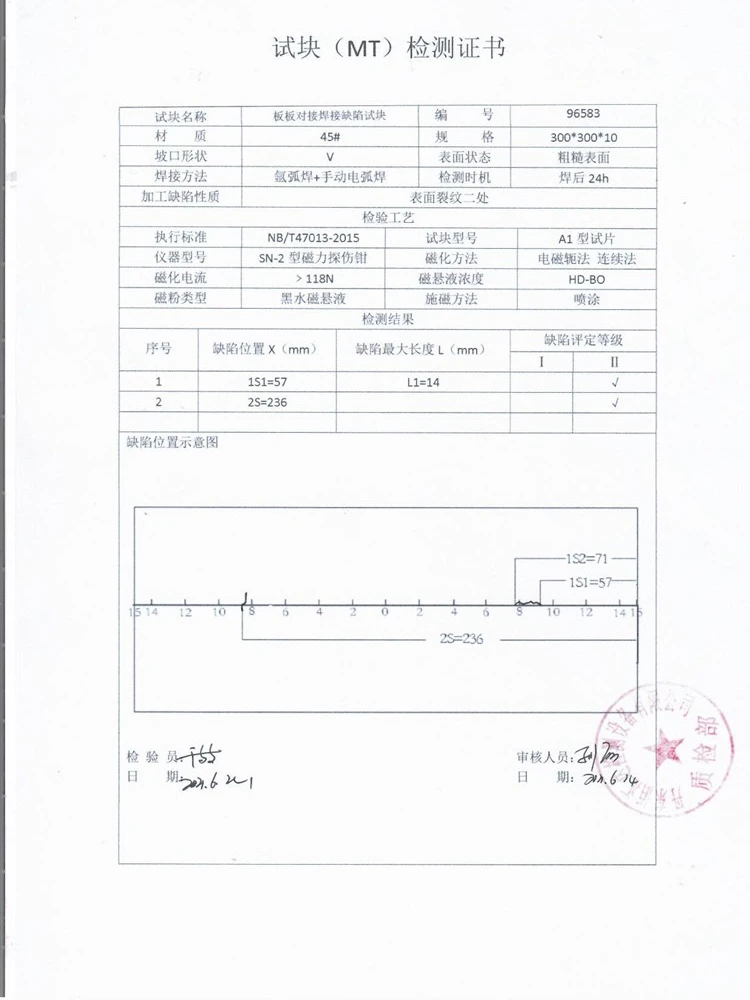 试块（MT）检测证书
试块名称 板板对接焊接缺陷试块 编 号 96583
材 质 45# 规 格 300*300*10
坡口形状 V 表面状态 粗糙表面
焊接方法 氩弧焊+手动电弧焊 检测时机 焊后24h
加工缺陷性质 表面裂纹二处
检验工艺
执行标准 NB/T47013-2015 试块型号 A1型试片
仪器型号 SN-2型磁力探伤钳 磁化方法 电磁轭法 连续法
磁化电流 >118N 磁悬液浓度 HD-BO
磁粉类型 黑水磁悬液 施磁方法 喷涂
检测结果
序号 缺陷位置X（mm） 缺陷最大长度L（mm） 缺陷评定等级
I II
1 1S1=57 L1=14 √
2 2S=236 √
缺陷位置示意图
1S2=71
1S1=57
15 14 12 10 8 6 4 2 0 2 4 6 8 10 12 14 15
2S=236
检 验 员 审核人员:
日 期: 日 期:
质检部